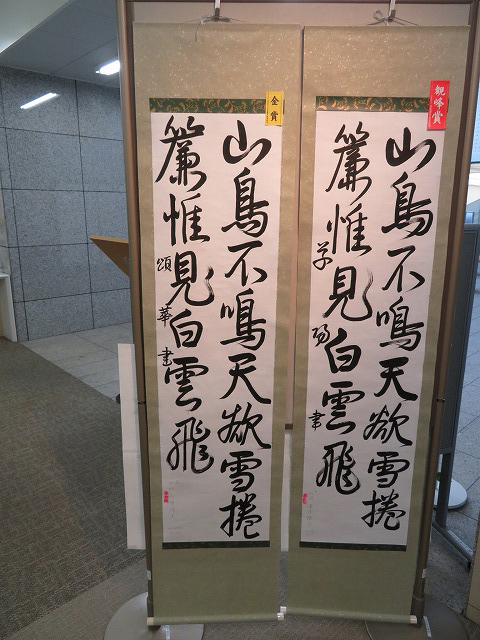 觀峰賞
山鳥不鳴天欲雪捲
簾惟見白雲飛
金賞
山鳥不鳴天欲雪捲
簾惟見白雲飛
頌華書